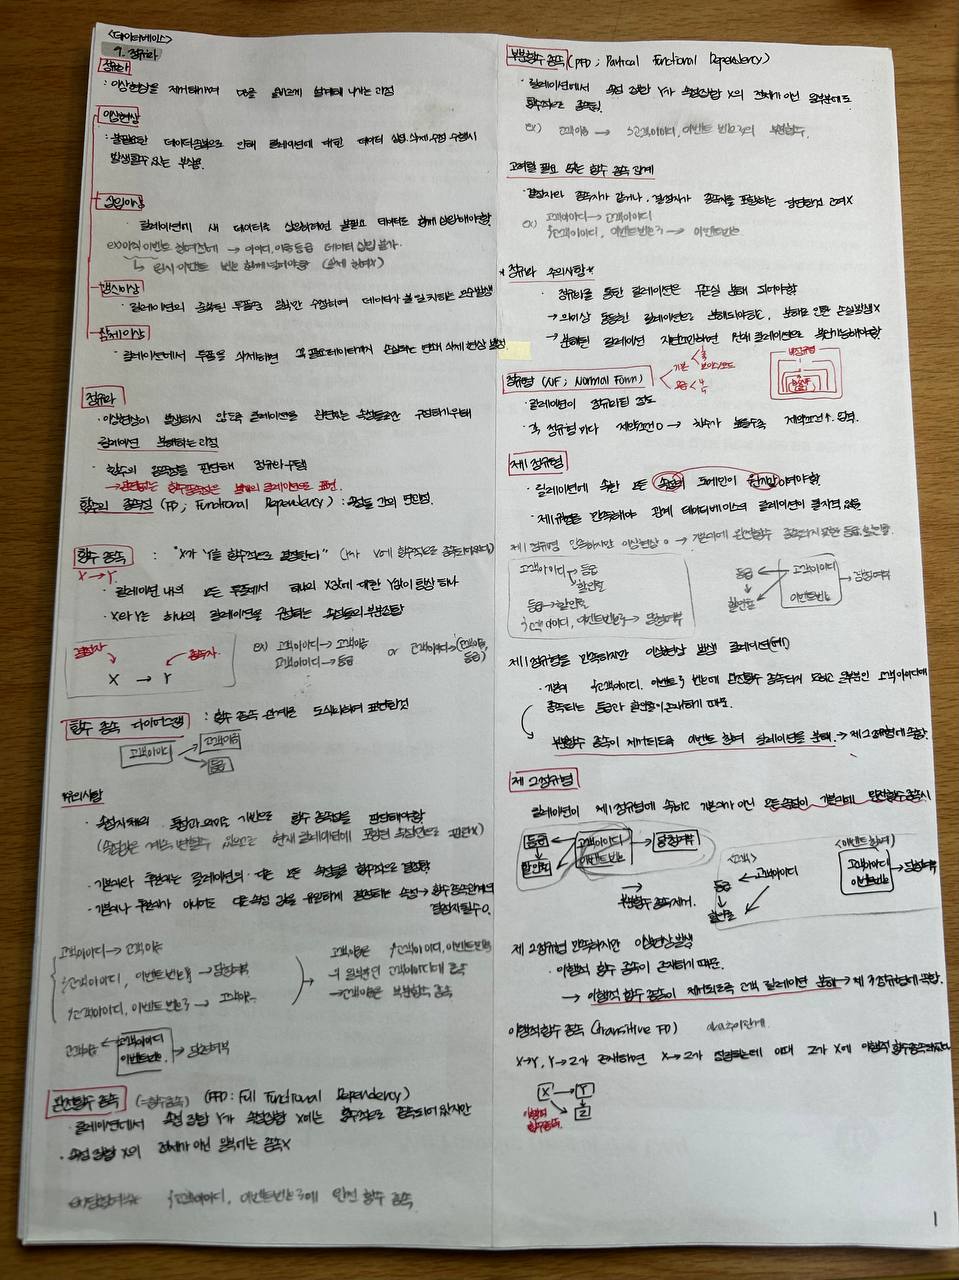 <데이터베이스>
9. 정규화
정규화
: 이상현상을 제거해가며 DB를 올바르게 설계해 나가는 과정
이상현상
: 불필요한 데이터중복으로 인해 릴레이션에 대한 데이터 삽입.삭제.수정 수행시
발생할수 있는 부작용.
삽입이상
· 릴레이션에 새 데이터를 삽입하려면 불필요 데이터도 함께 삽입해야함
ex) 아직 이벤트 참여전에 → 아이디, 이름, 등급 데이터 삽입 불가.
↳ 임시 이벤트 번호 함께 넣어야함 (실제 참여x)
갱신이상
· 릴레이션의 중복된 투플중 일부만 수정하여 데이터가 불일치하는 모순발생
삭제이상
· 릴레이션에서 투플을 삭제하면 꼭 필요데이터까지 손실되는 연쇄 삭제 현상 발생
정규화
· 이상현상이 발생하지 않도록 릴레이션을 관련있는 속성들로만 구성하기위해
릴레이션 분해하는 과정
· 함수의 종속성을 판단해 정규화수행
→ 관련없는 함수종속성은 별개의 릴레이션으로 표현
함수의 종속성 (FD ; Functional Dependency) : 속성들 간의 관련성.
함수 종속 : "X가 Y를 함수적으로 결정한다" (Y가 X에 함수적으로 종속되어있다)
X → Y
· 릴레이션 내의 모든 투플에서 하나의 X값에 대한 Y값이 항상 하나
· X와 Y는 하나의 릴레이션을 구성하는 속성들의 부분집합
결정자 종속자
X → Y
ex) 고객아이디 → 고객이름 or 고객아이디→(고객이름,
고객아이디 → 등급 등급)
함수 종속 다이어그램 : 함수 종속 관계를 도식화하여 표현한것
고객아이디 고객이름
등급
*유의사항
· 속성자체의 특성과 의미를 기반으로 함수 종속성을 판단해야함
(속성값은 계속 변할수 있으므로 현재 릴레이션에 포함된 속성값으로 판단x)
· 기본키와 후보키는 릴레이션의 다른 모든 속성들을 함수적으로 결정함
· 기본키나 후보키가 아니어도 다른속성 값을 유일하게 결정하는 속성 → 함수 종속관계에서
결정자될수 O.
고객아이디 → 고객이름
{고객아이디, 이벤트번호} → 당첨여부
{고객아이디, 이벤트번호} → 고객이름
→ 고객이름은 {고객아이디, 이벤트번호}
의 일부분인 고객아이디에 종속
→ 고객이름은 부분함수 종속
고객이름 ← 고객아이디
이벤트번호 → 당첨여부
완전함수 종속 (=함수종속) (FFD : Full Functional Dependency)
· 릴레이션에서 속성 집합 Y가 속성집합 X에는 함수적으로 종속되어 있지만
· 속성 집합 X의 전체가 아닌 일부에는 종속X
ex) 당첨여부는 {고객아이디, 이벤트번호}에 완전 함수 종속
부분함수 종속 (PFD ; Partical Functional Dependency)
· 릴레이션에서 속성 집합 Y가 속성집합 X의 전체가 아닌 일부분에도
함수적으로 종속됨.
ex) 고객이름 → {고객아이디, 이벤트 번호}의 부분함수.
고려할 필요 없는 함수 종속 관계
· 결정자와 종속자가 같거나, 결정자가 종속자를 포함하는 당연한것 고려X
ex) 고객아이디 → 고객아이디
{고객아이디, 이벤트번호} → 이벤트번호
* 정규화 주의사항 *
· 정규화를 통한 릴레이션은 무손실 분해 되어야함
→ 의미상 동등한 릴레이션으로 분해되어야하고, 분해로 인한 손실발생X
→ 분해된 릴레이션 자연조인하면 원래 릴레이션으로 복원가능해야함
정규형 (NF ; Normal Form)
기본 < 1,2,3
보이스/코드
고급 < 4
5
비정규형
· 릴레이션이 정규화된 정도
· 각 정규형 마다 제약조건O → 차수가 높을수록 제약조건↑. 엄격.
제1정규형
· 릴레이션에 속한 모든 속성의 도메인이 원자값이여야함
· 제1정규형을 만족해야 관계 데이터베이스의 릴레이션이 될자격 있음
제1정규형 만족하지만 이상현상 O → 기본키에 완전함수 종속되지 못한 등급, 할인율.
고객아이디 → 등급
할인율
등급 → 할인율
{고객아이디, 이벤트번호} → 당첨여부
등급 고객아이디 → 당첨여부
할인율 이벤트번호
제1정규형을 만족하지만 이상현상 발생 릴레이션(예)
· 기본키 {고객아이디, 이벤트} 번호에 완전함수 종속되지 못하고 일부분인 고객아이디에
종속되는 등급과 할인율이 존재하기 때문.
부분함수 종속이 제거되도록 이벤트 참여 릴레이션을 분해. → 제2정규형에 속함.
제 2정규형
릴레이션이 제1정규형에 속하고 기본키가 아닌 모든속성이 기본키에 완전함수 종속시
등급 고객아이디 → 당첨여부
할인율 이벤트번호
→
부분함수 종속 제거.
<고객>
등급 ← 고객아이디
할인율
<이벤트 참여>
고객아이디 → 당첨여부
이벤트번호
제 2정규형 만족하지만 이상현상발생
· 이행적 함수 종속이 존재하기 때문.
→ 이행적 함수 종속이 제거되도록 고객 릴레이션 분해 → 제 3정규형에 속함.
이행적함수 종속 (transitive FD)
X→Y, Y→Z가 존재하면 X→Z가 성립하는데 이때 Z가 X에 이행적 함수종속되었다
X → Y
Z
이행적
함수종속.
1